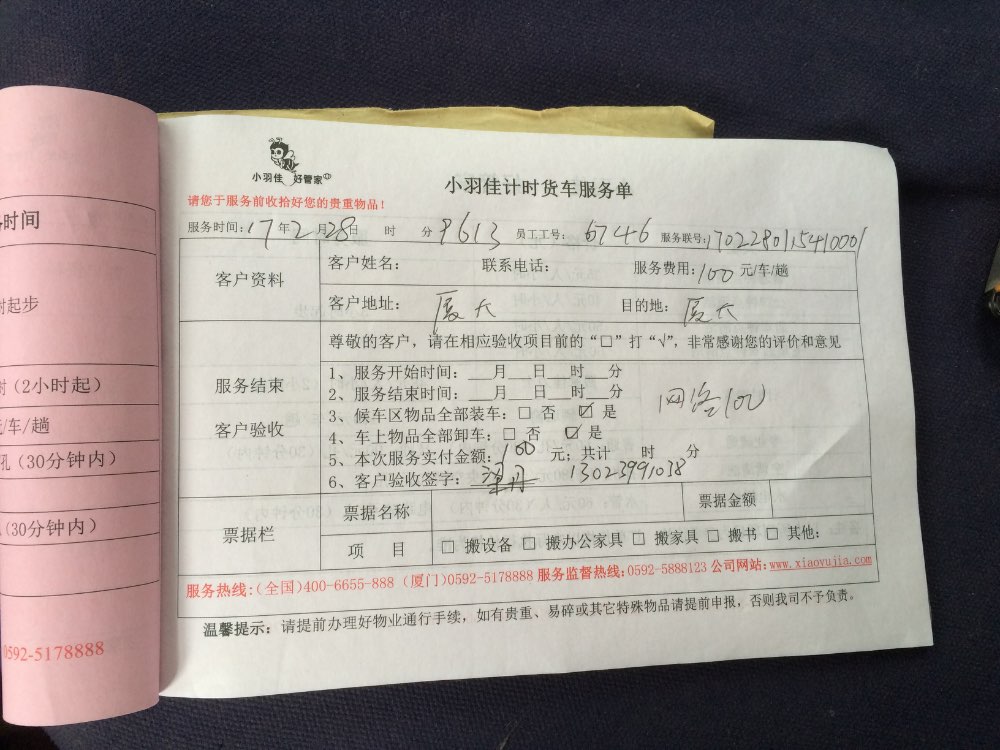 小羽佳 好管家
小羽佳计时货车服务单
请您于服务前收拾好您的贵重物品！
服务时间：17年2月28日 时 分 9613 员工工号： 6746 服务联号：1702280115410001
客户资料
客户姓名： 联系电话： 服务费用：100元/车/趟
客户地址： 厦大 目的地： 厦大
服务结束
客户验收
尊敬的客户，请在相应验收项目前的“□”打“√”，非常感谢您的评价和意见
1、服务开始时间：__月__日__时__分
2、服务结束时间：__月__日__时__分
3、候车区物品全部装车：□ 否 ☑ 是
网络100
4、车上物品全部卸车：□ 否 ☑ 是
5、本次服务实付金额：100 元；共计 时 分
6、客户验收签字： 13023991038
票据栏
票据名称 票据金额
项 目 □ 搬设备 □ 搬办公家具 □ 搬家具 □ 搬书 □ 其他：
服务热线：（全国）400-6655-888（厦门）0592-5178888 服务监督热线：0592-5888123 公司网站：www.xiaoyujia.com
温馨提示：请提前办理好物业通行手续，如有贵重、易碎或其它特殊物品请提前申报，否则我司不予负责。
时间
时起步
（2小时起）
/车/趟
孔（30分钟内）
（30分钟内）
0592-5178888